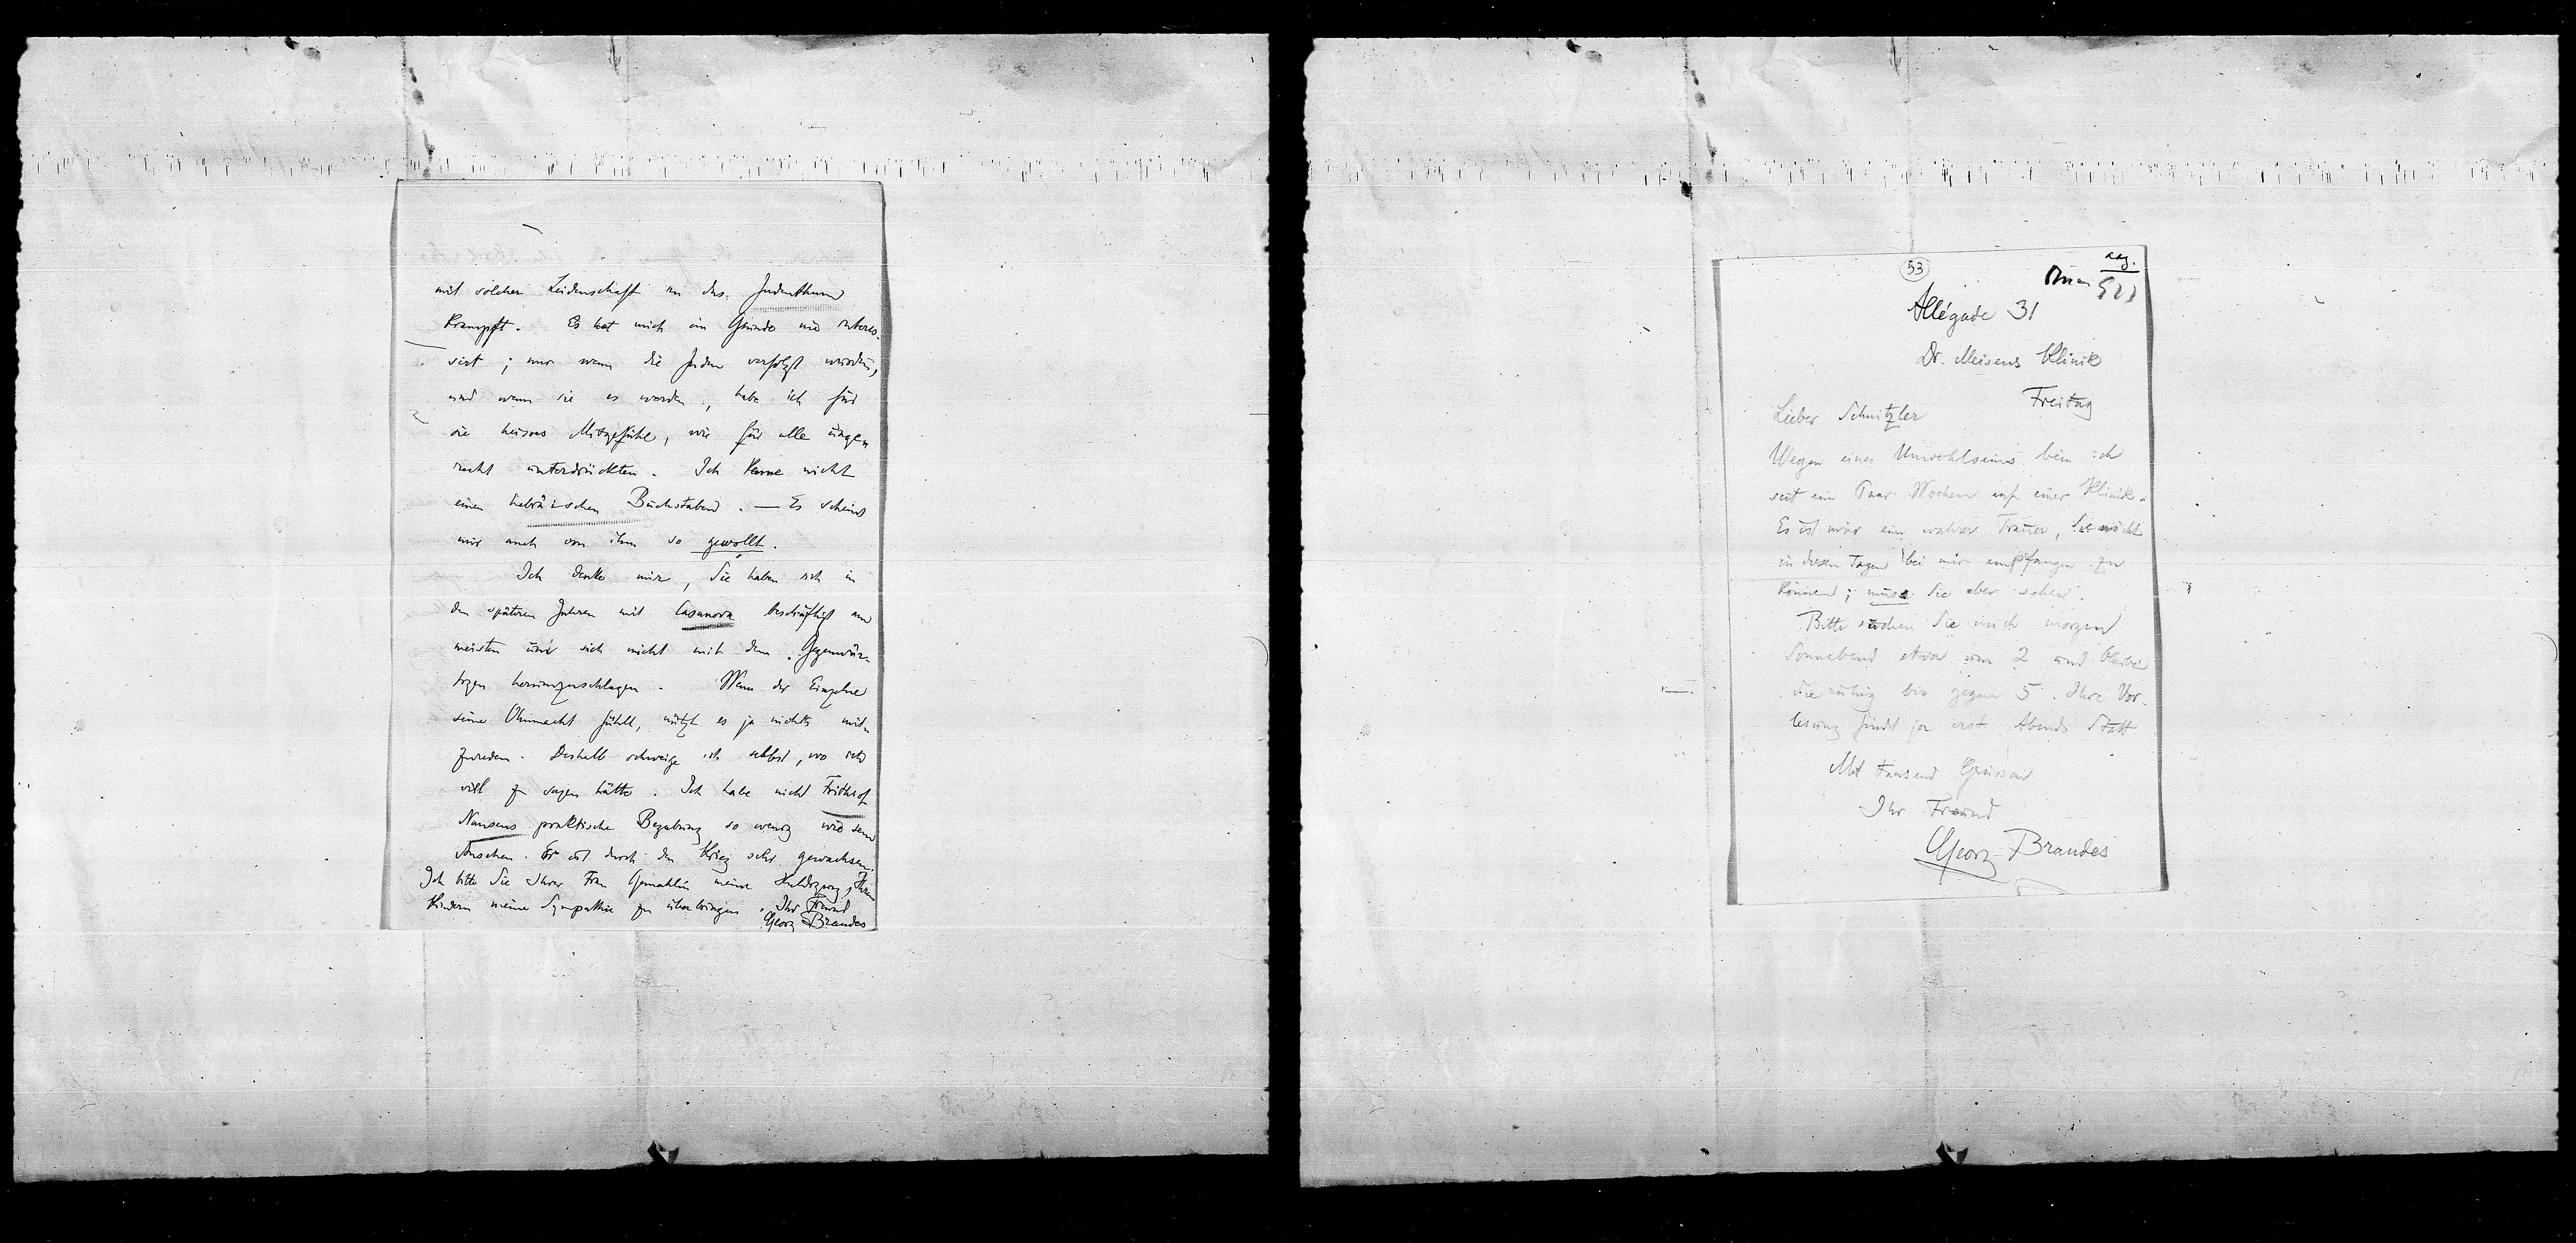 mit solcher Leidenschaft in das Judenthum
krampft. Es hat mich im Grunde nie interes-
sirt; nur wenn die Juden verfolgt wurden,
und wenn sie es werden, habe ich für
sie heisses Mitgefühl, wie für alle unge-
recht unterdrückten. Ich kenne nicht
einen hebräischen Buchstaben. — Es scheint
mir auch von ihm so gewollt.
Ich denke mir, Sie haben sich in
den späteren Jahren mit Casanova beschäftigt um
meisten um sich nicht mit dem Gegenwär-
tigen herumzuschlagen. Wenn der Einzelne
seine Ohnmacht fühlt, nützt es ja nichts mit-
zureden. Deshalb schweige ich selbst, wo ich
viel zu sagen hätte. Ich habe nicht Frithiof
Nansens praktische Begabung so wenig wie sein
Ansehen. Er ist durch den Krieg sehr gewachsen.
Ich bitte Sie Ihrer Frau Gemahlin meine Huldigung, Ihren
Kindern meine Sympathie zu überbringen. Ihr Freund
Georg Brandes
53
Allégade 31
Dr. Meisens Klinik
Freitag
Lieber Schnitzler
Wegen eines Unwohlseins bin ich
seit ein Paar Wochen auf einer Klinik.
Es ist mir eine wahre Trauer, Sie nicht
in diesen Tagen bei mir empfangen zu
können; muss Sie aber sehen.
Bitte suchen Sie mich morgen
Sonnabend etwa um 2 und bleiben
Sie ruhig bis gegen 5. Ihre Vor-
lesung findet ja erst Abends Statt
Mit tausend Grüssen
Ihr Freund
Georg Brandes